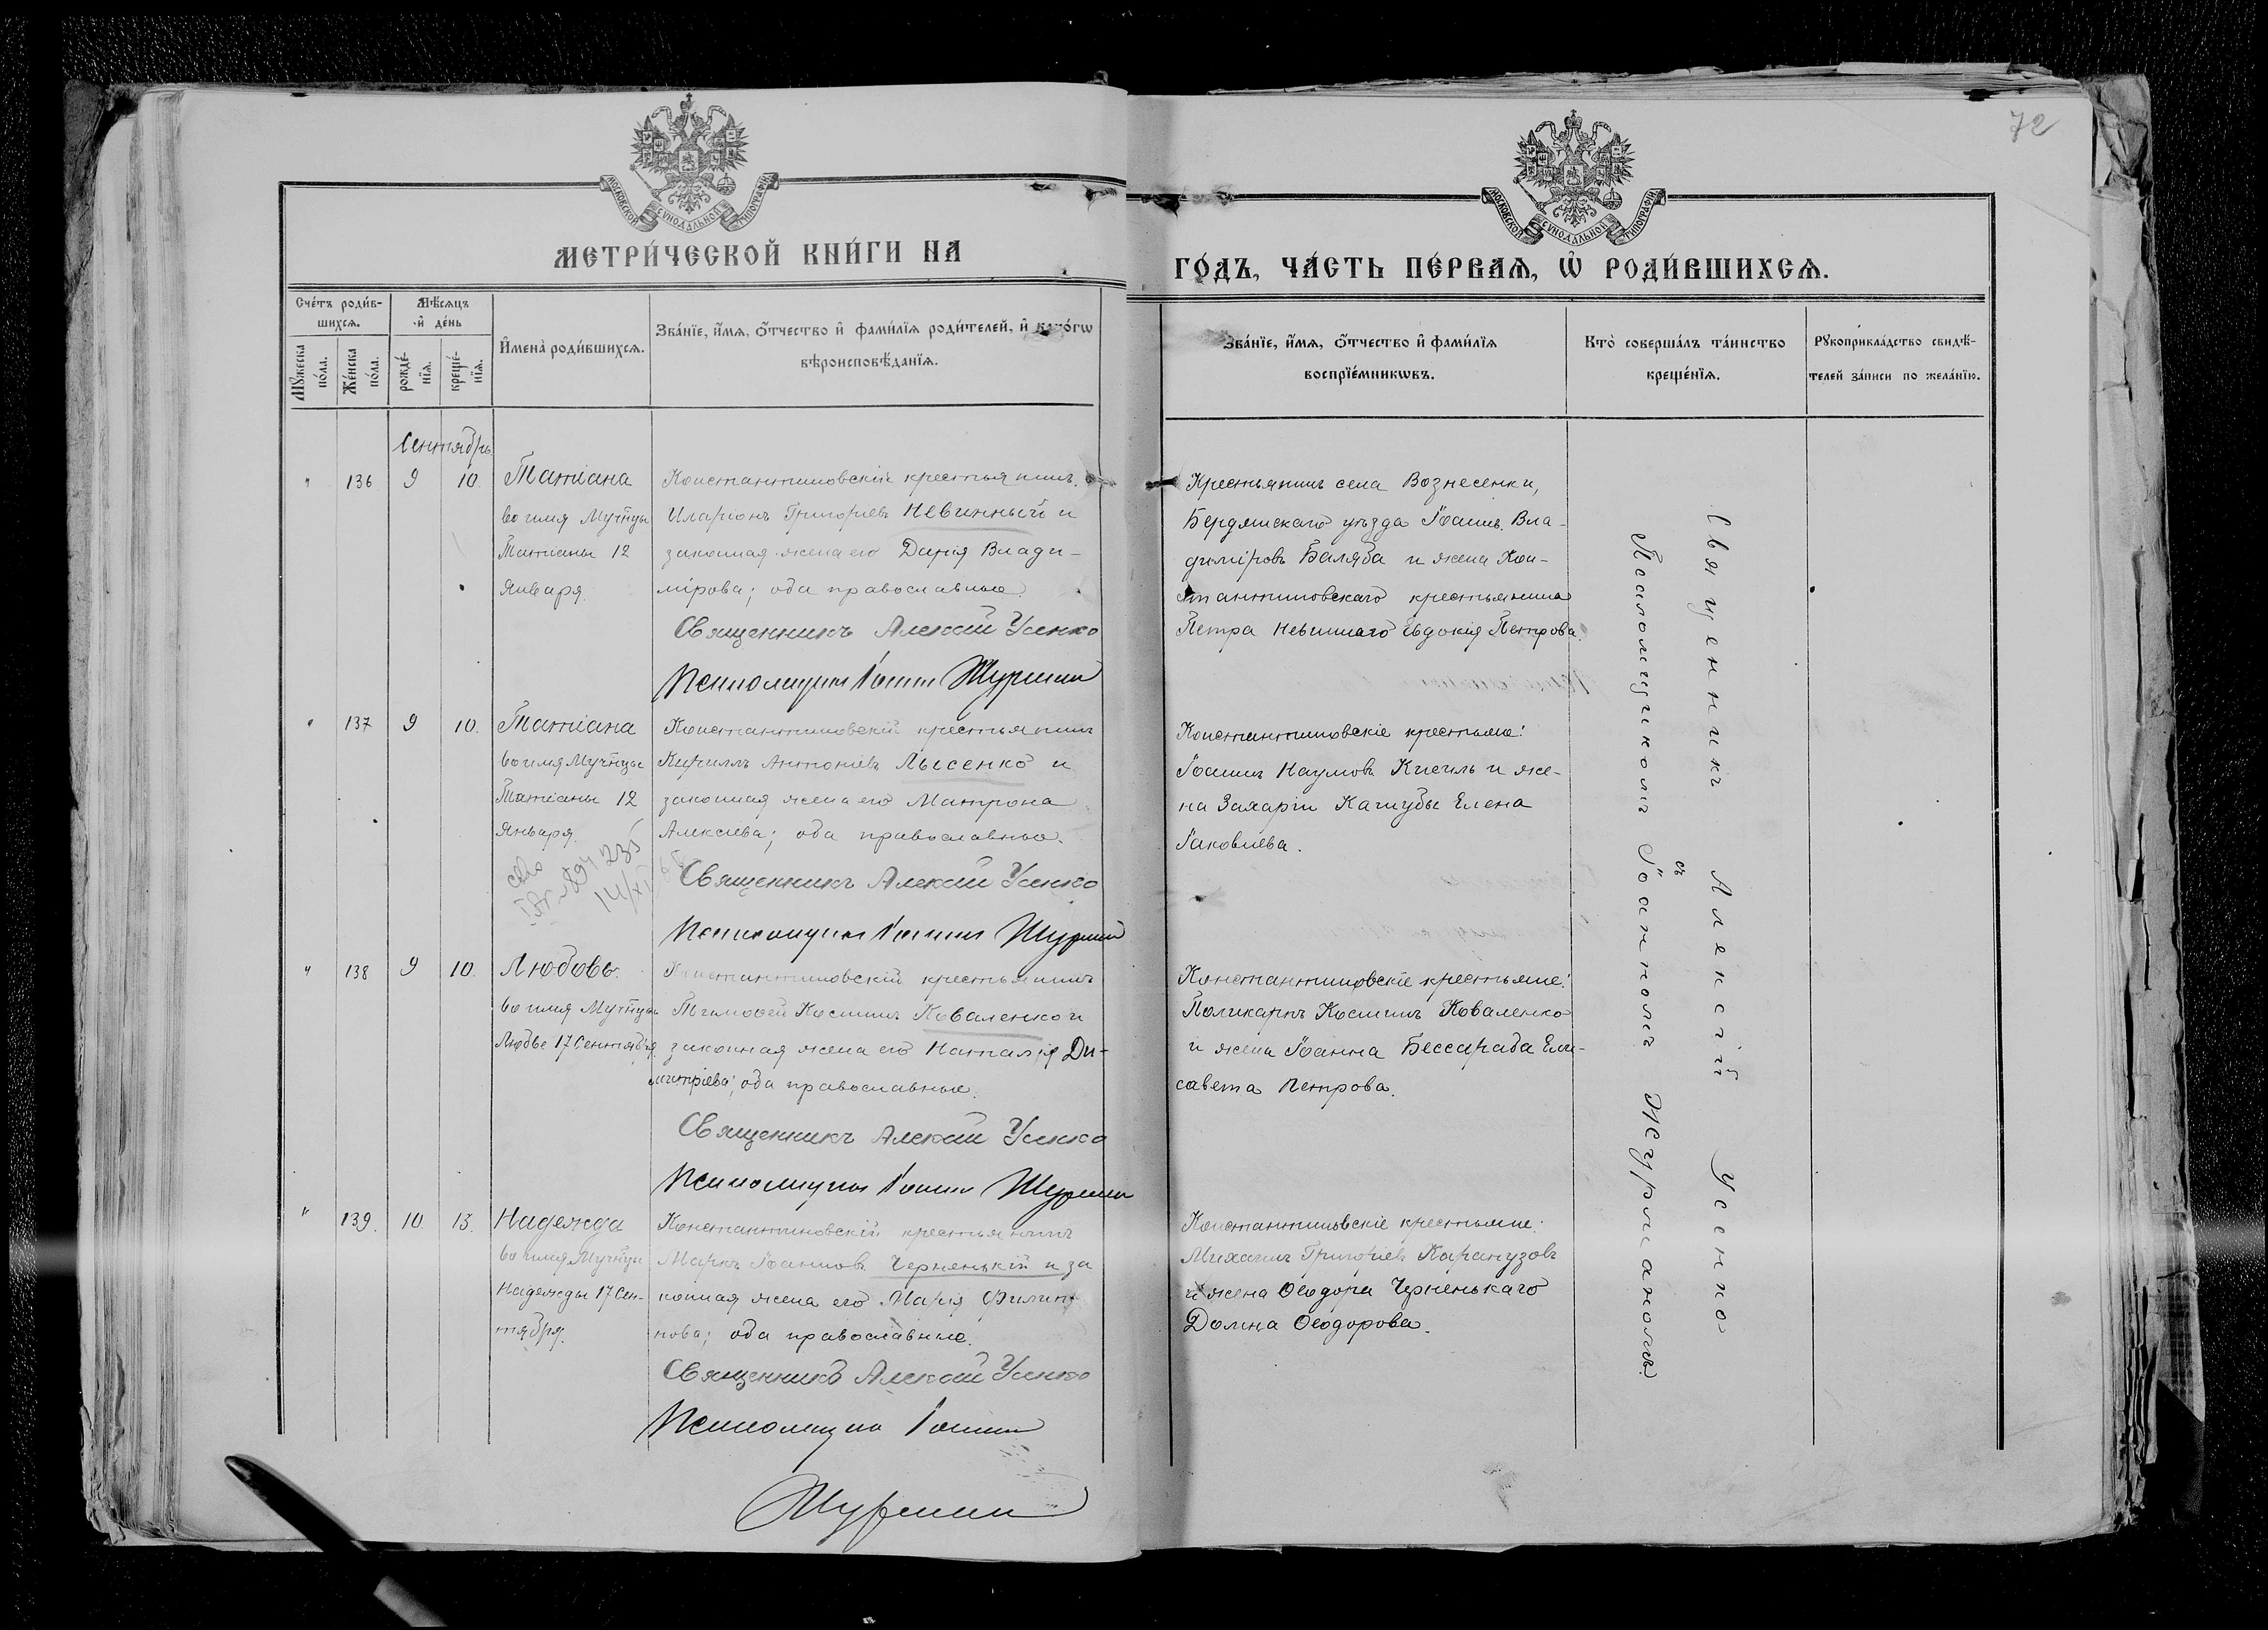 72
МОСКОВСКОЙ СУНОДАЛЬНОЙ ТИПОГРАФІИ
МОСКОВСКОЙ СУНОДАЛЬНОЙ ТИПОГРАФІИ
МЕТРИ́ЧЕСКОЙ КНИ́ГИ НА
ГО́ДЪ, ЧА́СТЬ ПЕ́РВАѦ, Ѡ РОДИ́ВШИХСѦ.
Сче́тъ роди́в-
шихсѧ.
Мѣ́сѧцъ
и де́нь
Мꙋ́жеска
по́ла.
Же́нска
по́ла.
рожде́-
нїѧ.
креще́-
нїѧ.
И҆мена̀ роди́вшихсѧ.
Зва́нїе, и҆́мѧ, ѻ҆́тчество и҆ фами́лїѧ роди́телей, и҆ како́гѡ
вѣроисповѣ́данїѧ.
Зва́нїе, и҆́мѧ, ѻ҆́тчество и҆ фами́лїѧ
воспрїе́мникѡвъ.
Кто̀ соверша́лъ та́инство
креще́нїѧ.
Рꙋкоприкла́дство свидѣ́-
телей за́писи по жела́нїю.
Сентябрь
" 136 9 10. Татіана
во имя Муч̃цы
Татіаны 12
Января.
Константиновскій крестьянинъ
Иларіонъ Григоріевъ Невинный и
законная жена его Дарія Влади-
мірова; оба православные.
Священникъ Алексій Усенко
Псаломщикъ Іоаннъ Журманъ
Крестьянинъ села Вознесенки,
Бердянскаго уѣзда Іоаннъ Вла-
диміровъ Баляба и жена Кон-
стантиновскаго крестьянина
Петра Невиннаго Евдокія Петрова.
" 137 9 10. Татіана
во имя Муч̃цы
Татіаны 12
Января.
Константиновскій крестьянинъ
Кириллъ Антоніевъ Лысенко и
законная жена его Матрона
Алексіева; оба православные.
Священникъ Алексій Усенко
Псаломщикъ Іоаннъ Журманъ
Константиновскіе крестьяне:
Іоаннъ Наумовъ Кисиль и же-
на Захаріи Качубы Елена
Іаковлева.
" 138 9 10. Любовь.
во имя Муч̃цы
Любве 17 Сентября
Константиновскій крестьянинъ
Тимоѳей Косминъ Коваленко и
законная жена его Наталія Ди-
митріева; оба православные.
Священникъ Алексій Усенко
Псаломщикъ Іоаннъ Журманъ
Константиновскіе крестьяне:
Поликарпъ Косминъ Коваленко
и жена Іоанна Бессараба Ели-
савета Петрова.
" 139. 10. 13. Надежда
во имя Муч̃цы
Надежды 17 Сен-
тября.
Константиновскій крестьянинъ
Маркъ Іоанновъ Черненькій и за
конная жена его Марія Филип-
пова; оба православные.
Священникъ Алексій Усенко
Псаломщикъ Іоаннъ
Журманъ
Константиновскіе крестьяне:
Михаилъ Григоріевъ Карагузовъ
и жена Ѳеодора Черненькаго
Домна Ѳеодорова.
Священникъ Алексій Усенко
съ
Псаломщикомъ Іоанномъ Журманомъ.